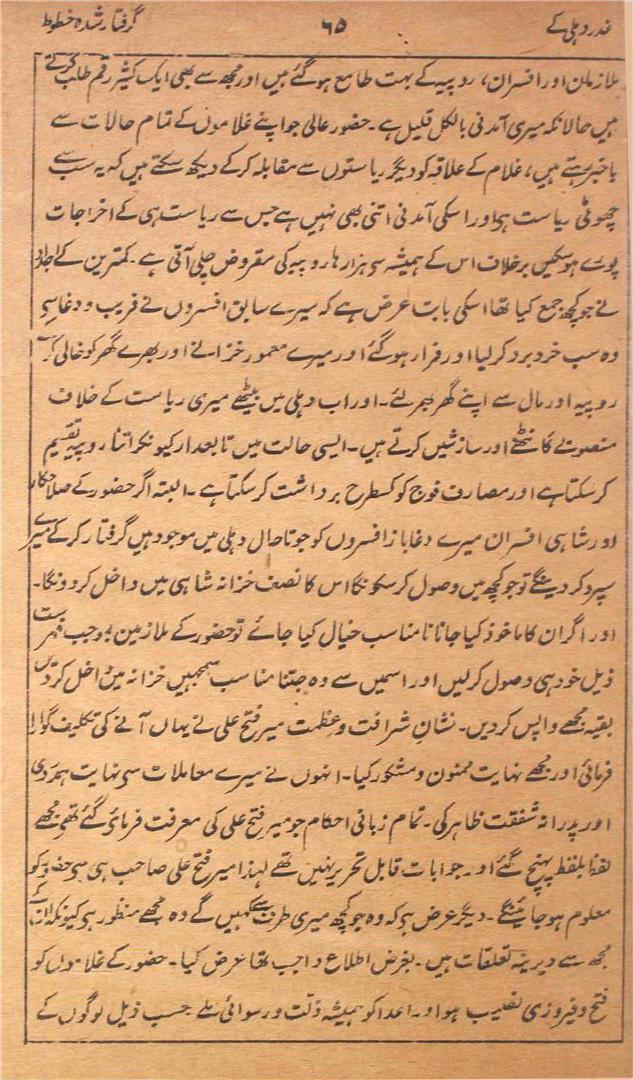 غدر دہلی کے ۶۵ گرفتار شدہ خطوط
ملازمان اور افسران، روپیہ کے بہت طامع ہو گئے ہیں اور مجھ سے بھی ایک کثیر رقم طلب کرتے
ہیں حالانکہ میری آمدنی بالکل قلیل ہے۔ حضور عالی جو اپنے غلاموں کے تمام حالات سے
باخبر رہتے ہیں، غلام کے علاقہ کو دیگر ریاستوں سے مقابلہ کر کے دیکھ سکتے ہیں کہ یہ سب سے
چھوٹی ریاست ہی اور اسکی آمدنی اتنی بھی نہیں ہے جس سے ریاست ہی کے اخراجات
پورے ہو سکیں برخلاف اس کے ہمیشہ سی ہزار ہا روپیہ کی مقروض چلی آتی ہے۔ کمترین کے اجداد
نے جو کچھ جمع کیا تھا اسکی بابت عرض ہے کہ میرے سابق افسروں نے فریب و دغا سی
وہ سب خرد برد کر لیا اور فرار ہو گئے اور میرے معمور خزانے اور بھرے گھر کو خالی کر
روپیہ اور مال سے اپنے گھر بھر لئے۔ اور اب دہلی میں بیٹھے میری ریاست کے خلاف
منصوبے گانٹھتے اور سازشیں کرتے ہیں۔ ایسی حالت میں تابعدار کیونکر اتنا روپیہ تقسیم
کر سکتا ہے اور مصارف فوج کو کسطرح برداشت کر سکتا ہے۔ البتہ اگر حضور کے صلاحکار
اور شاہی افسران میرے دغا باز افسروں کو جو تاحال دہلی میں موجود ہیں گرفتار کر کے میرے
سپرد کر دینگے تو جو کچھ میں وصول کر سکونگا اس کا نصف خزانہ شاہی میں داخل کر دونگا۔
اور اگر ان کا ماخوذ کیا جانا نامناسب خیال کیا جائے تو حضور کے ملازمین بموجب فہرست
ذیل خود ہی وصول کر لیں اور اسمیں سے وہ جتنا مناسب سمجھیں خزانہ میں داخل کر دیں
بقیہ مجھے واپس کر دیں۔ نشان شرافت و عظمت میر فتح علی نے یہاں آنے کی تکلیف گوارا
فرمائی اور مجھے نہایت ممنون و مشکور کیا۔ انہوں نے میرے معاملات سی نہایت ہمدردی
اور پدرانہ شفقت ظاہر کی۔ تمام زبانی احکام جو میر فتح علی کی معرفت فرمائے گئے تھے مجھے
لفظ بلفظ پہنچ گئے اور جوابات قابل تحریر نہیں تھے لہٰذا میر فتح علی صاحب ہی سی حضور کو
معلوم ہو جائینگے۔ دیگر عرض ہی کہ وہ جو کچھ میری طرف سے کہیں گے وہ مجھے منظور ہی کیونکہ ان کے
مجھ سے دیرینہ تعلقات ہیں۔ بغرض اطلاع واجب تھا عرض کیا۔ حضور کے غلاموں کو
فتح و فیروزی نصیب ہو اور اعدا کو ہمیشہ ذلت و رسوائی ملے حسب ذیل لوگوں کے